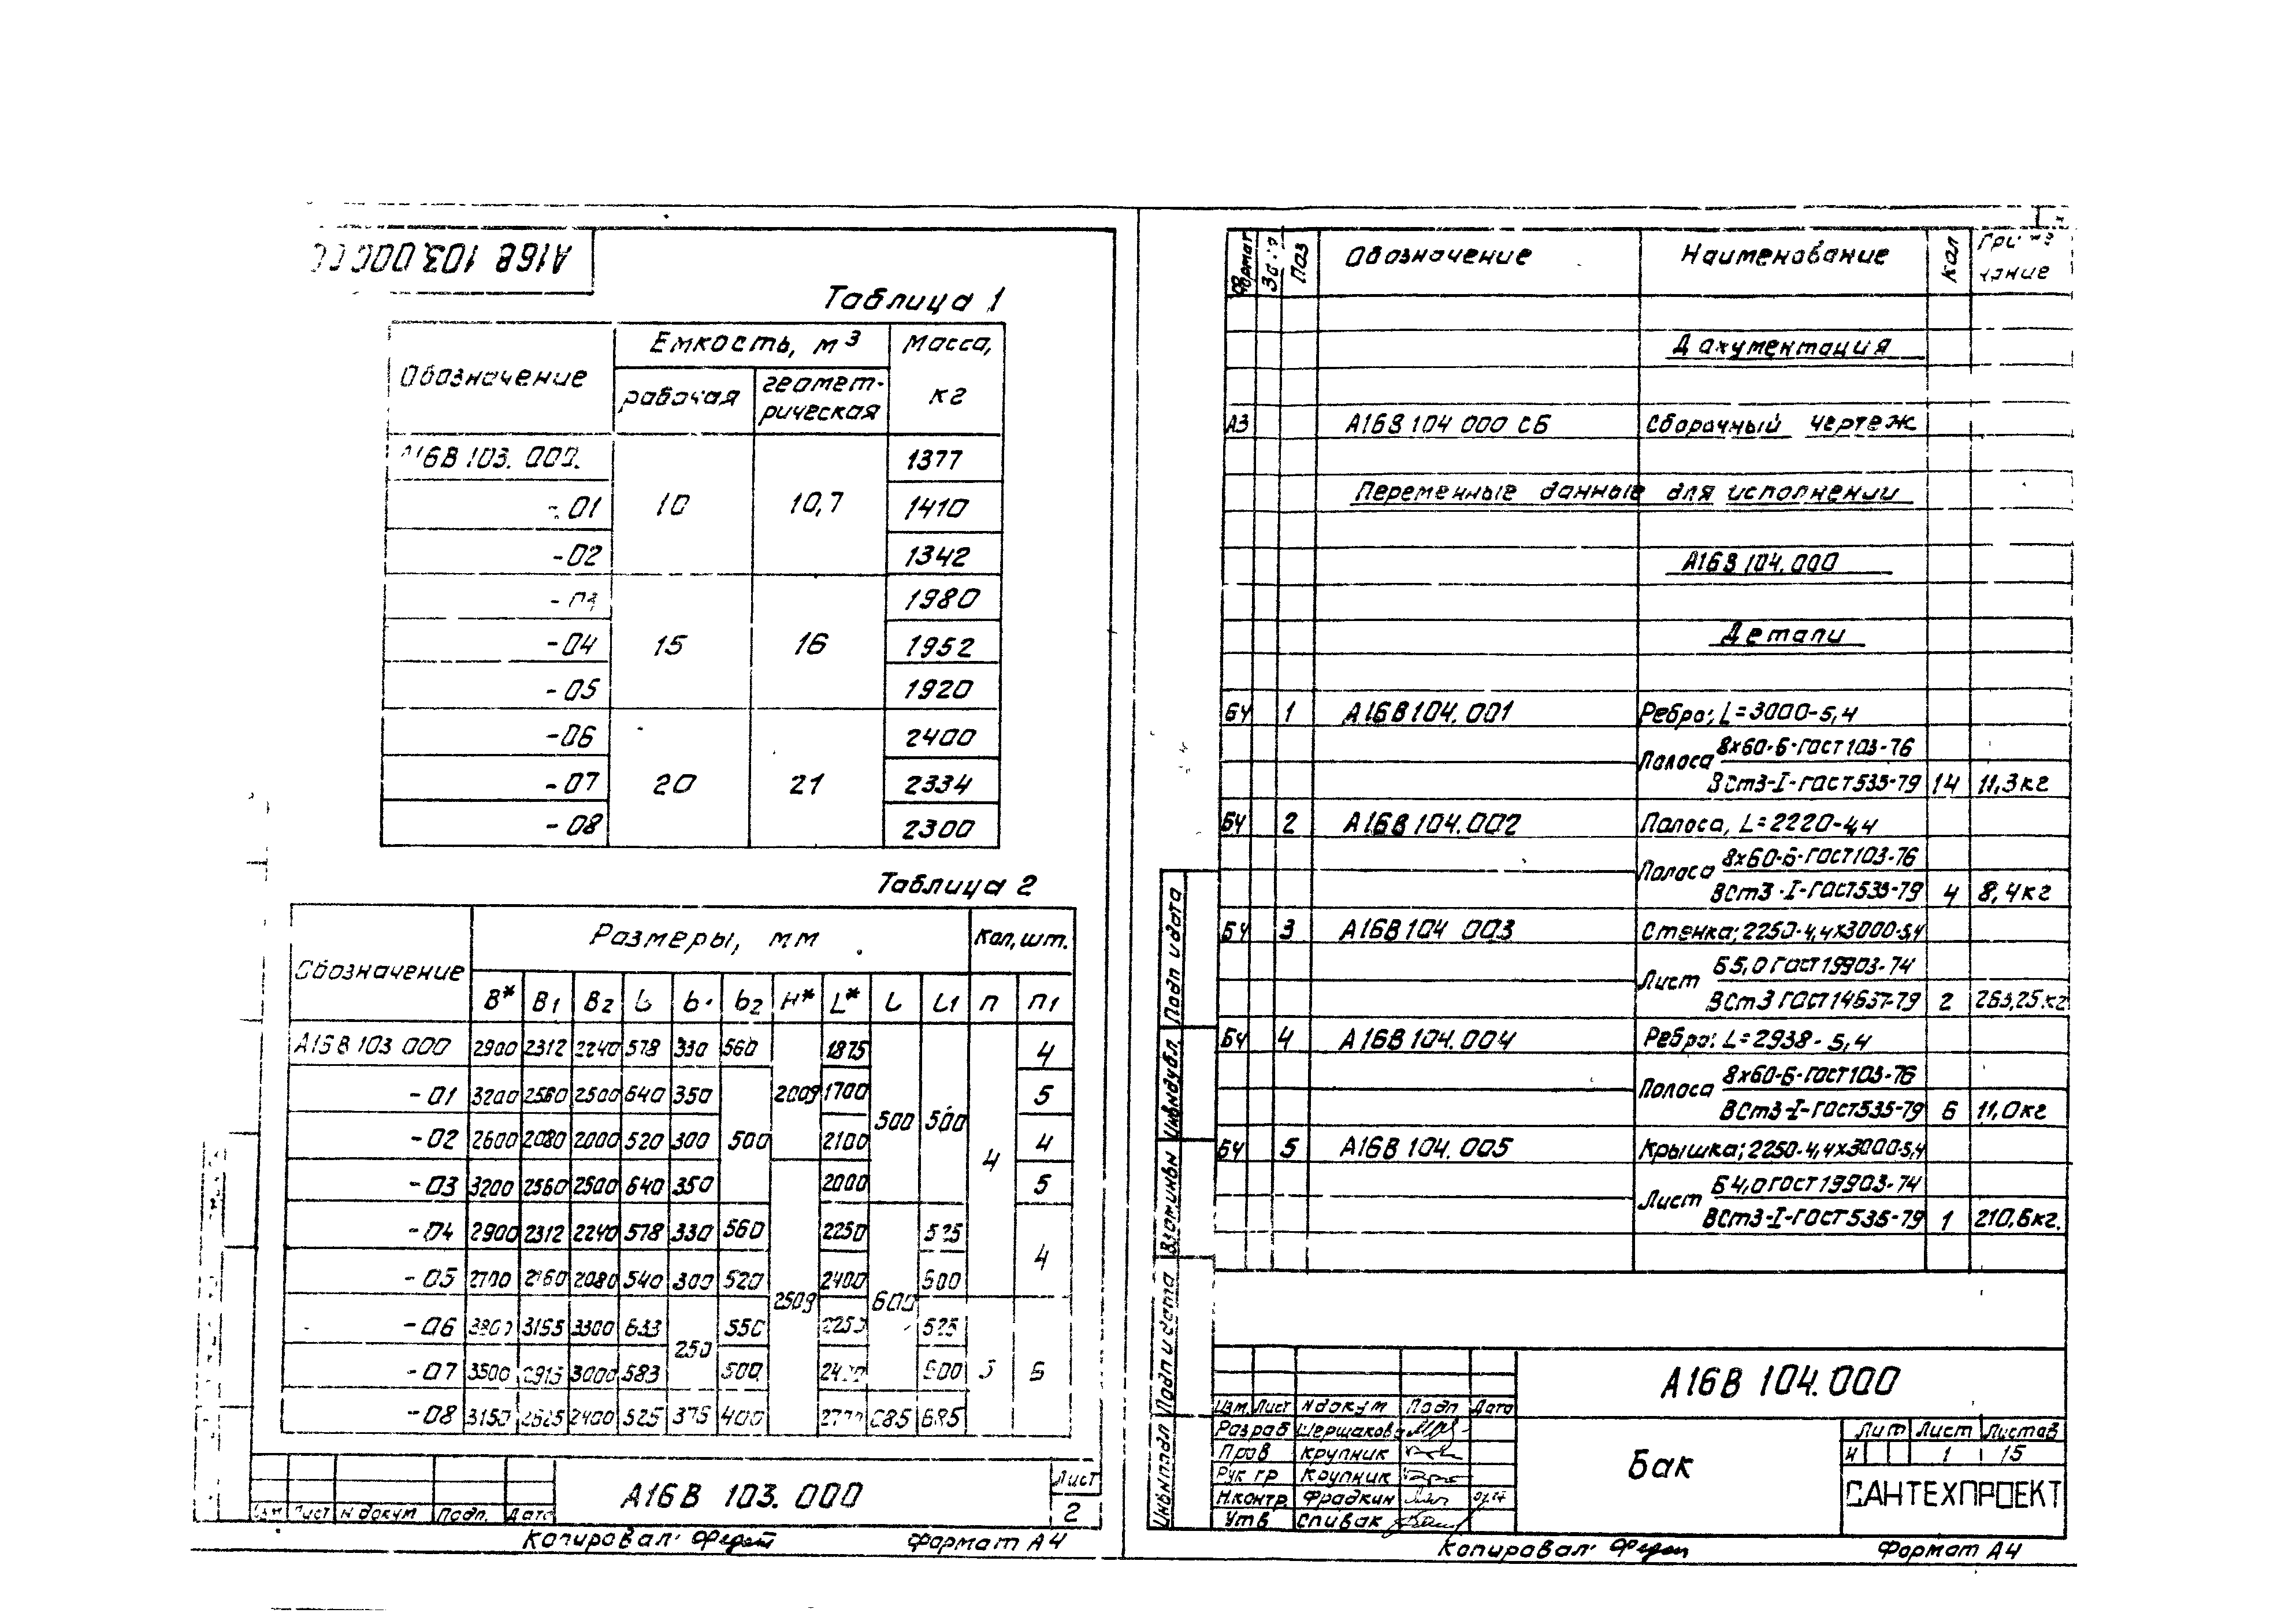 А16В 103.000 СС
Таблица 1
Обозначение Емкость, м³ Масса, кг
рабочая геометрическая
А16В 103.000. 10 10,7 1377
-01 1410
-02 1342
-03 15 16 1980
-04 1952
-05 1920
-06 20 21 2400
-07 2334
-08 2300
Таблица 2
Обозначение Размеры, мм Кол, шт.
B* B1 B2 b b1 b2 H* L* l l1 n n1
А16В 103 000 2900 2312 2240 578 330 560 2009 1875 500 500 4 4
-01 3200 2560 2500 640 350 500 1700 5
-02 2600 2080 2000 520 300 2100 4
-03 3200 2560 2500 640 350 2509 2000 5
-04 2900 2312 2240 578 330 560 2250 600 525 4
-05 2700 2160 2080 540 300 520 2400 600
-06 3165 3300 633 250 550 2250 525
-07 3500 2915 3000 583 500 600 6
-08 3150 2625 2400 525 375 400 685 685
Изм Лист № докум Подп. Дата
А16В 103.000
Лист
2
Копировал: Формат А4
Формат Зона Поз Обозначение Наименование Кол Примечание
Документация
А3 А16В 104 000 СБ Сборочный чертеж
Переменные данные для исполнении
А16В 104.000
Детали
БЧ 1 А16В 104.001 Ребро; L=3000-5,4
Полоса 8х60-Б-ГОСТ 103-76
ВСт3-I-ГОСТ 535-79 14 11,3кг
БЧ 2 А16В 104.002 Полоса, L=2220-4,4
Полоса 8х60-Б-ГОСТ 103-76
ВСт3-I-ГОСТ 535-79 4 8,4кг
БЧ 3 А16В 104 003 Стенка; 2250-4,4х3000-5,4
Лист Б5,0 ГОСТ 19903-74
ВСт3 ГОСТ 14637-79 2 263,25.кг
БЧ 4 А16В 104.004 Ребро: L=2938-5,4
Полоса 8х60-Б-ГОСТ 103-76
ВСт3-I-ГОСТ 535-79 6 11,0кг
БЧ 5 А16В 104.005 Крышка; 2250-4,4х3000-5,4
Лист Б4,0 ГОСТ 19903-74
ВСт3-I-ГОСТ 535-79 1 210,6кг.
Подп и дата
Инв№дубл.
Взам инв№
Подп и дата
Инв№подл
Изм. Лист № докум Подп Дата
Разраб Шершакова
Пров Крупник
Рук гр Крупник
Н.контр Фрадкин
Утв Спивак
А16В 104.000
Бак
Лит Лист Листов
И 1 15
САНТЕХПРОЕКТ
Копировал: Формат А4